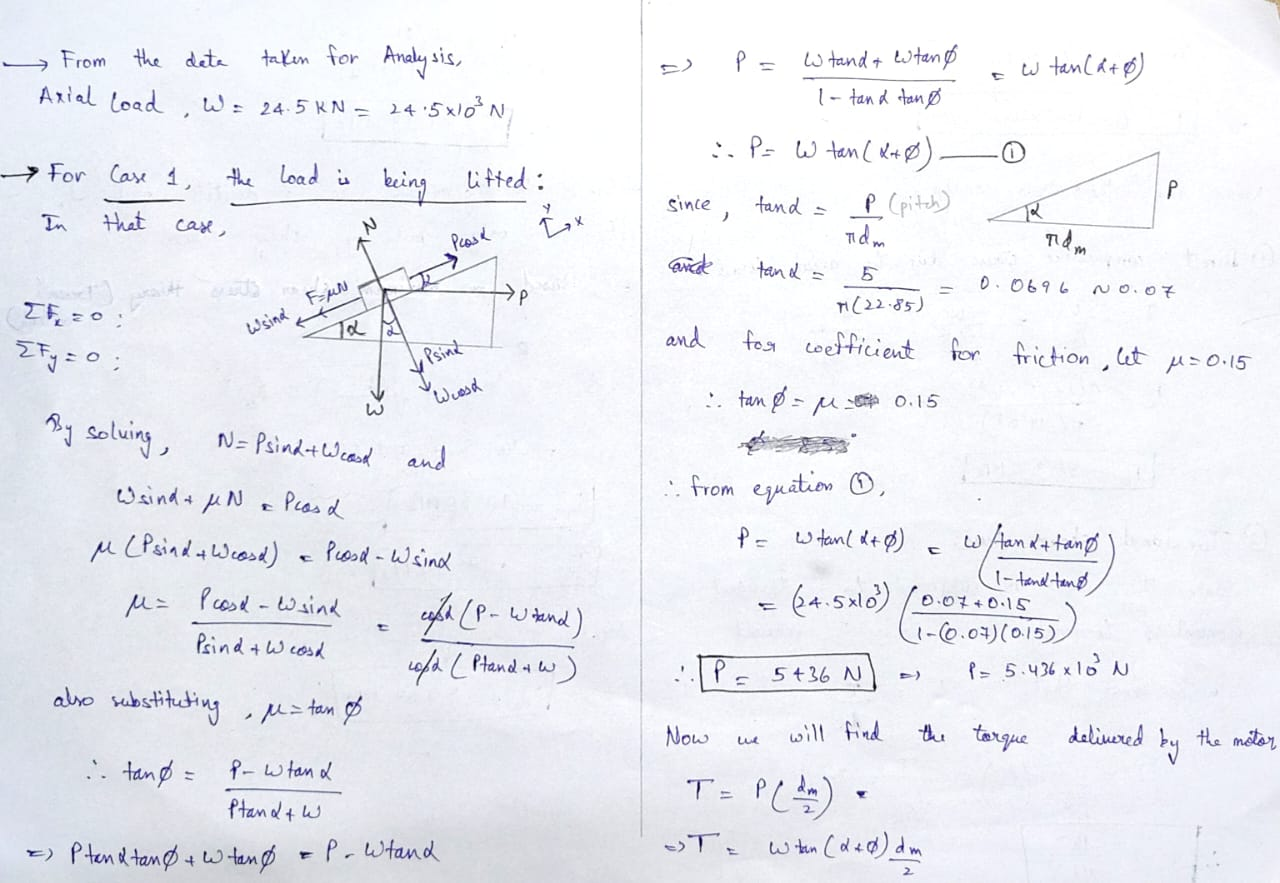 → From the data taken for Analysis,
Axial load, W = 24.5 KN = 24.5x10³ N
→ For Case 1, the load is being lifted:
In that case,
Y
X
N
Pcosα
α
F=μN
P
Wsinα
α
α
Psinα
Wcosα
W
ΣFx = 0 ;
ΣFy = 0 ;
By solving, N = Psinα+Wcosα and
Wsinα + μN = Pcosα
μ (Psinα+Wcosα) = Pcosα - Wsinα
μ = (Pcosα - Wsinα)/(Psinα + Wcosα) = cosα (P - Wtanα)/cosα (Ptanα + W)
also substituting, μ = tan Ø
∴ tanØ = (P - Wtanα)/(Ptanα + W)
=> PtanαtanØ + WtanØ = P - Wtanα
=> P = (Wtanα + WtanØ)/(1 - tanα tanØ) = W tan(α+Ø)
∴ P = W tan(α+Ø) — ①
α
P
πdm
since, tanα = P (pitch)/πdm
tanα = 5/π(22.85) = 0.0696 ~ 0.07
and for coefficient for friction, let μ = 0.15
∴ tanØ = μ = 0.15
∴ from equation ①,
P = W tan(α+Ø) = W ((tanα+tanØ)/(1-tanαtanØ))
= (24.5x10³) ((0.07+0.15)/(1-(0.07)(0.15)))
∴ P = 5436 N => P = 5.436 x 10³ N
Now we will find the torque delivered by the motor
T = P (dm/2)
=> T = W tan(α+Ø) dm/2